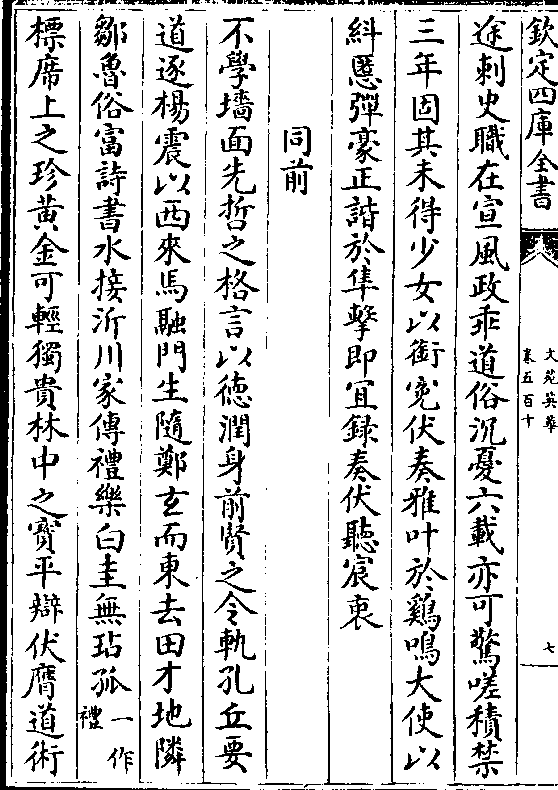 欽定四庫全書
文苑英華
卷五百十
七
途刺史職在宣風政乖道俗沉憂六載亦可驚嗟積禁
三年固其未得少女以銜寃伏奏雅叶於鷄鳴大使以
糾慝彈豪正諧於隼擊即宜録奏伏聽宸衷
同前
不學墻面先哲之格言以徳潤身前賢之令軌孔丘要
道逐楊震以西來馬融門生隨鄭玄而東去田才地隣
鄒魯俗富詩書水接沂川家傳禮樂白圭無玷孤一作禮
標席上之珍黄金可輕獨貴林中之寳平辯伏膺道術